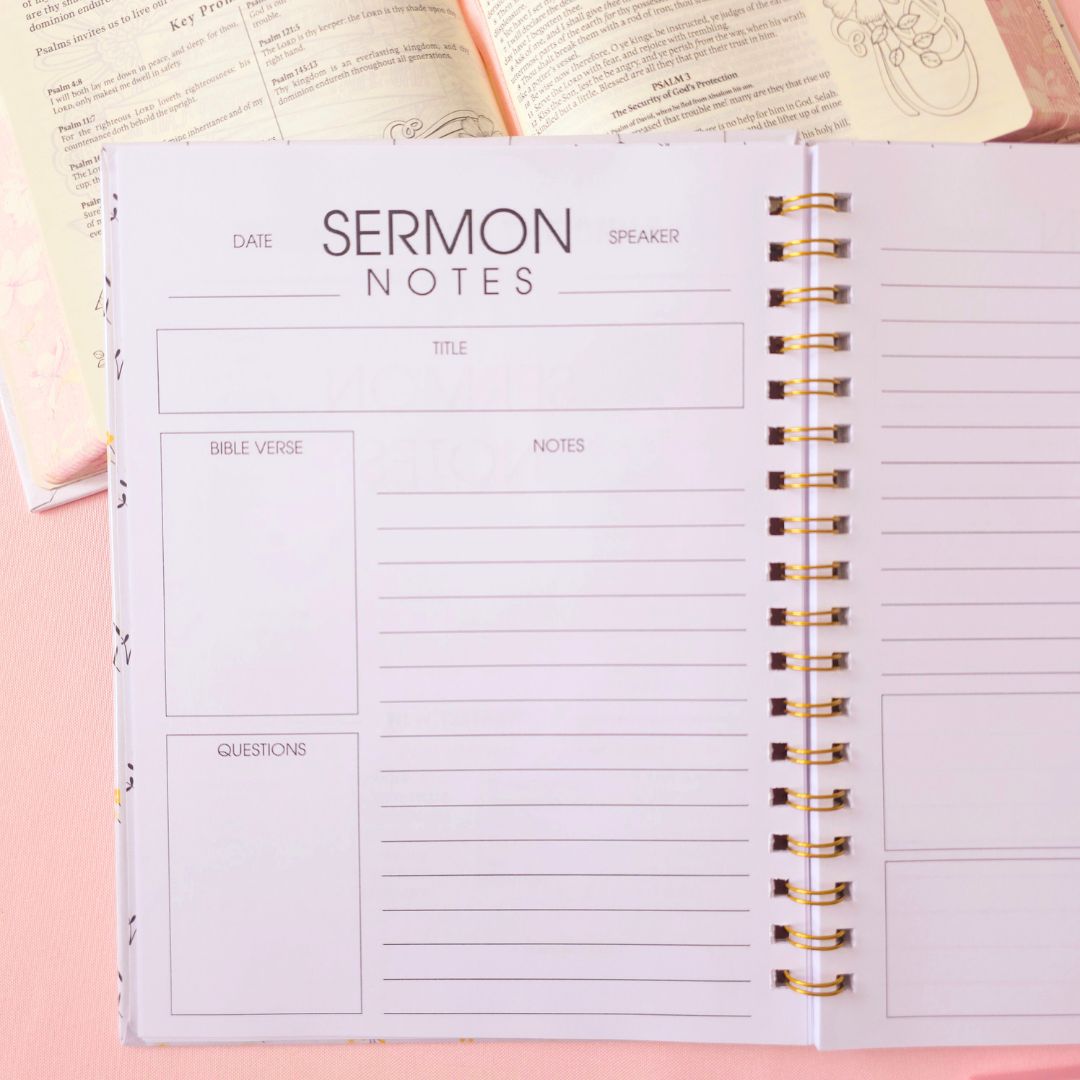 Psalms invites us to live our
Key
Psalm 4:8
I will both lay me down in peace, and sleep: for thou,
LORD, only makest me dwell in safety.
Psalm 11:7
For the righteous LORD loveth righteousness; his
countenance doth behold the upright.
mine inheritance and of my
God is our
trouble.
Psalm 121:5
The LORD is thy keeper: the LORD is thy shade upon thy
right hand.
Psalm 145:13
Thy kingdom is an everlasting kingdom, and thy
dominion endureth throughout all generations.
parts of the earth for thy possession.
break them with a rod of iron; thou shalt
a potter's vessel.
now therefore, O ye kings: be instructed, ye judges of the earth.
Serve the LORD with fear, and rejoice with trembling.
Kiss the Son, lest he be angry, and ye perish from the way, when his wrath
kindled but a little. Blessed are all they that put their trust in him.
PSALM 3
The Security of God's Protection
Psalm of David, when he fled from Absalom his son.
increased that trouble me! many are they that rise up
There is no help for him in God. Selah.
and the lifter up of mine
his holy hill.
DATE
SERMON
NOTES
SPEAKER
TITLE
BIBLE VERSE
NOTES
QUESTIONS